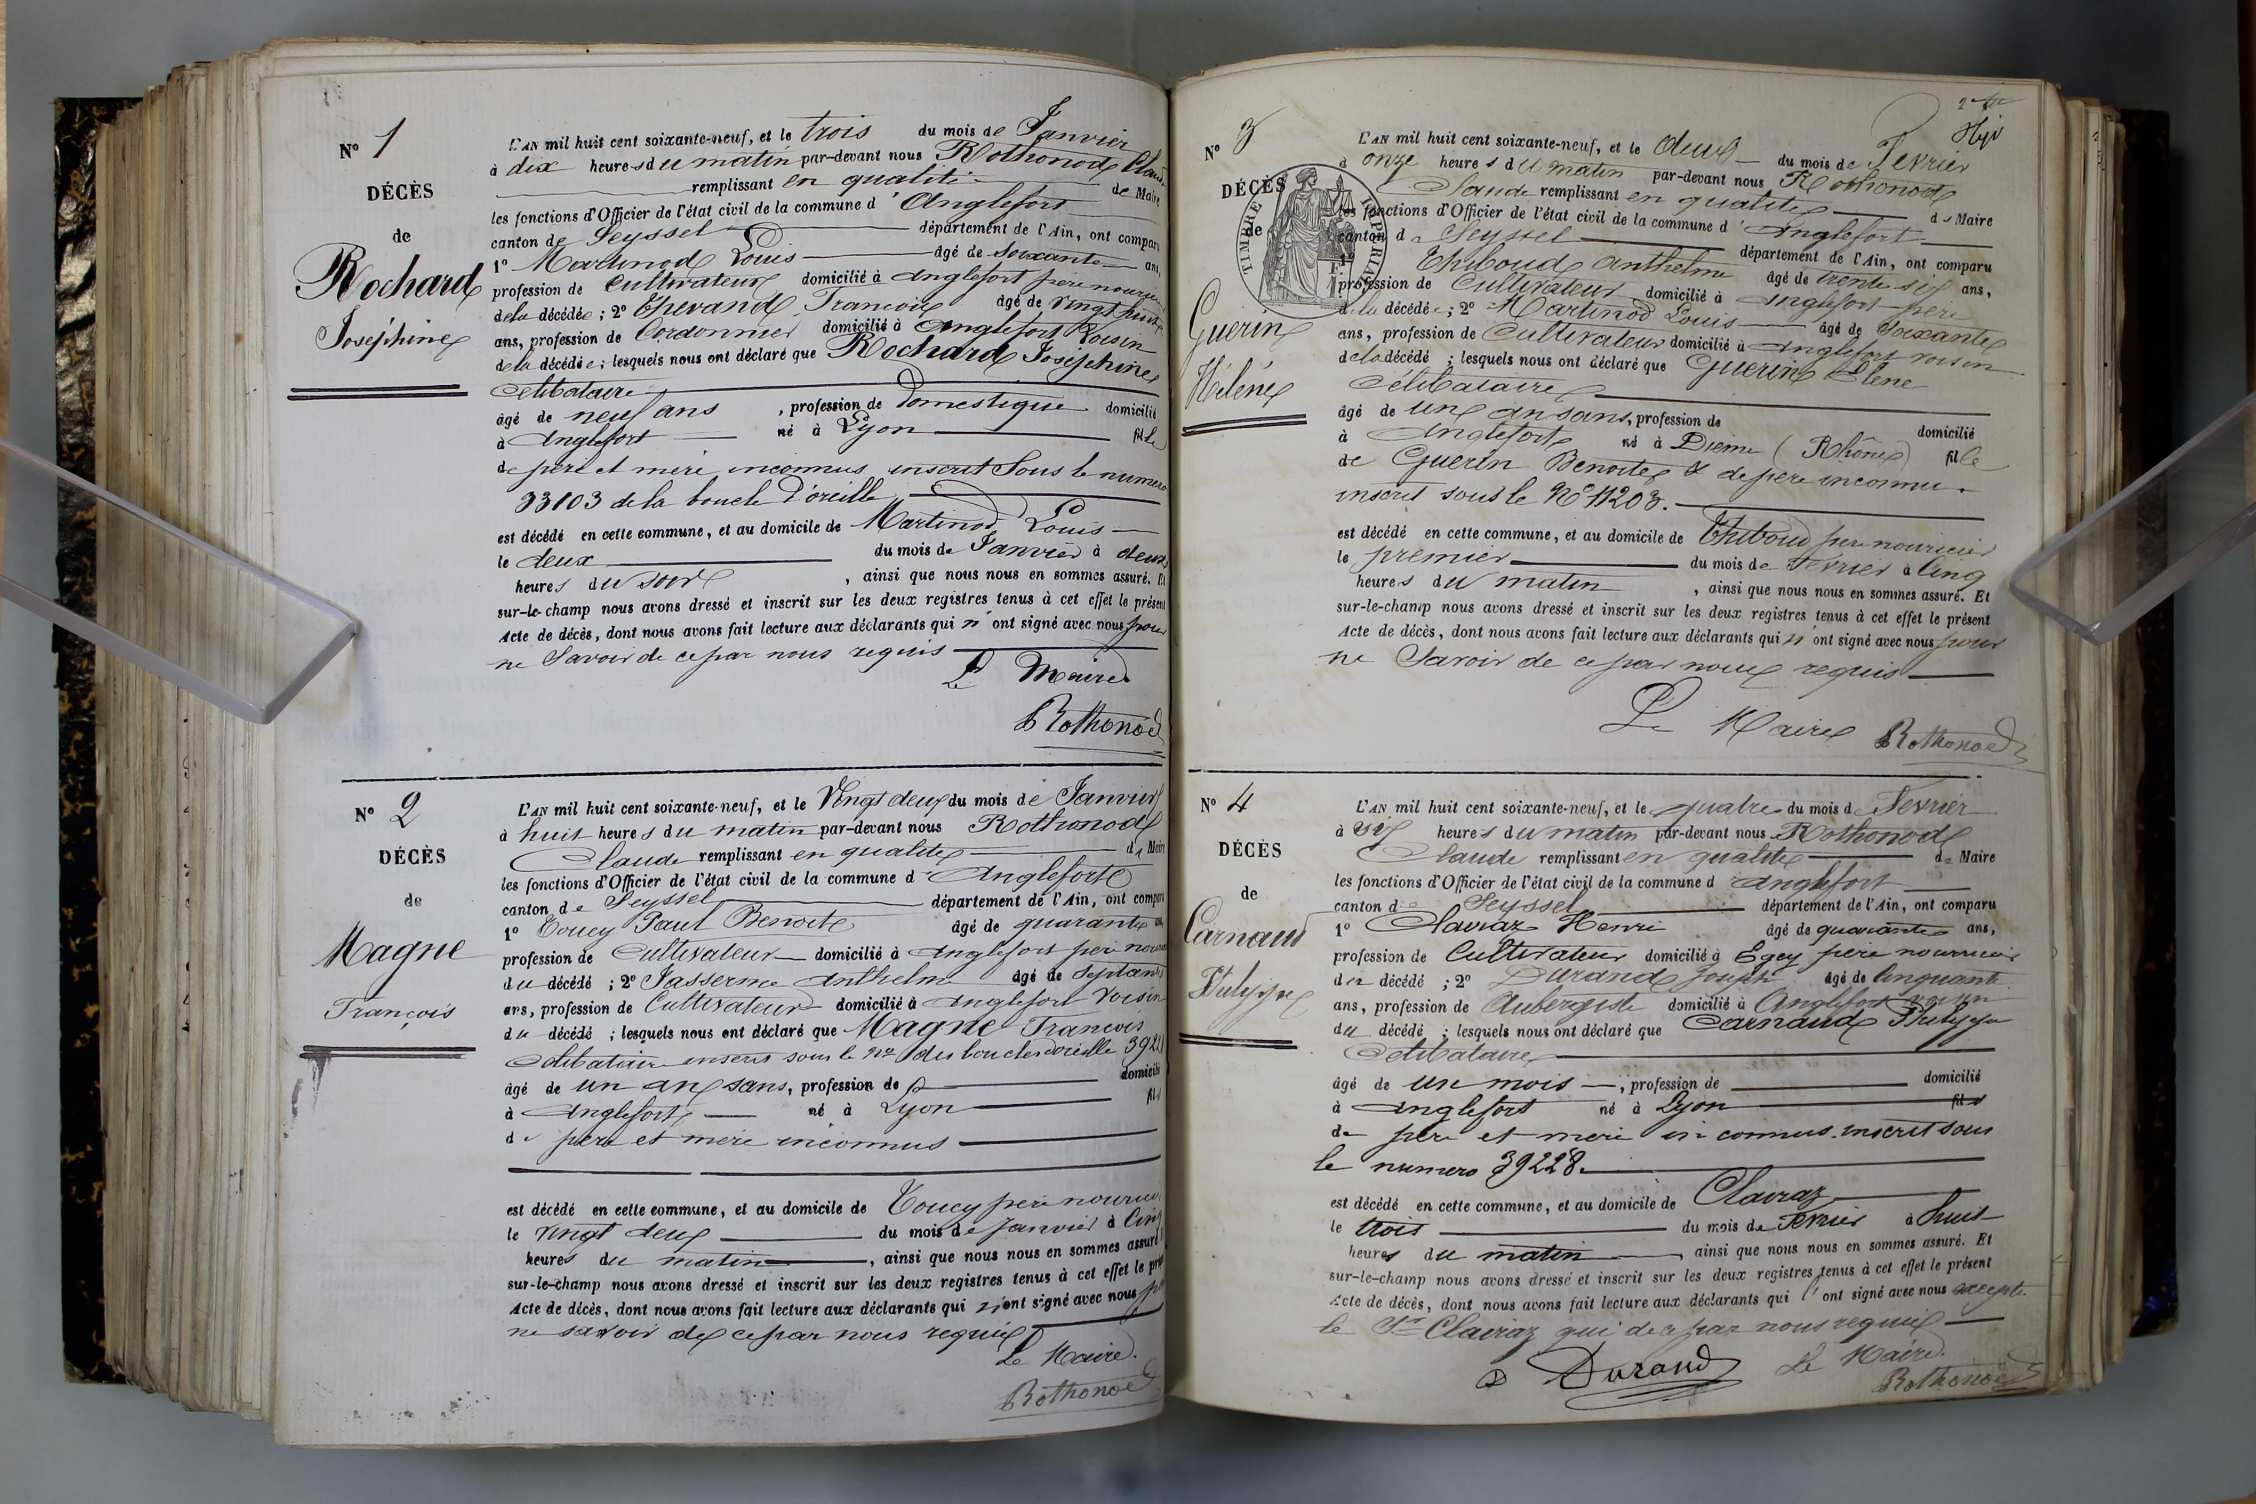 N° 1
DÉCÈS
de
Rochard
Joséphine
L'AN mil huit cent soixante-neuf, et le trois du mois de Janvier
à dix heures du matin par-devant nous Rothonod Claude
remplissant en qualité de Maire
les fonctions d'Officier de l'état civil de la commune d'Anglefort
canton de Seyssel département de l'Ain, ont comparu
1° Martinod Louis âgé de Soixante ans,
profession de Cultivateur domicilié à Anglefort père nourricier
de la décédée; 2° Thevand François âgé de vingt huit
ans, profession de Cordonnier domicilié à Anglefort Voisin
de la décédée; lesquels nous ont déclaré que Rochard Joséphine
Célibataire
âgé de neuf ans, profession de Domestique domicilié
à Anglefort né à Lyon fille
de père et mère inconnus inscrit Sous le numero
33103 de la boucle d'oreille
est décédé en cette commune, et au domicile de Martinod Louis
le deux du mois de Janvier à deux
heures du soir, ainsi que nous nous en sommes assuré. Et
sur-le-champ nous avons dressé et inscrit sur les deux registres tenus à cet effet le présent
Acte de décès, dont nous avons fait lecture aux déclarants qui n'ont signé avec nous pour
ne Savoir de ce par nous requis
Le Maire
Rothonod
N° 2
DÉCÈS
de
Magne
François
L'AN mil huit cent soixante-neuf, et le Vingt deux du mois de Janvier
à huit heures du matin par-devant nous Rothonod
Claude remplissant en qualité de Maire
les fonctions d'Officier de l'état civil de la commune d'Anglefort
canton de Seyssel département de l'Ain, ont comparu
1° Toucy Paul Benoite âgé de quarante ans
profession de Cultivateur domicilié à Anglefort père nourricier
du décédé; 2° Jasserme Anthelme âgé de Septante
ans, profession de Cultivateur domicilié à Anglefort Voisin
du décédé; lesquels nous ont déclaré que Magne François
Célibataire inscrit sous le N° des boucles d'oreille 3921
âgé de un an sans, profession de domicilié
à Anglefort né à Lyon fils
de père et mère inconnus
est décédé en cette commune, et au domicile de Toucy père nourricier
le vingt deux du mois de Janvier à Cinq
heures du matin, ainsi que nous nous en sommes assuré.
sur-le-champ nous avons dressé et inscrit sur les deux registres tenus à cet effet le présent
Acte de décès, dont nous avons fait lecture aux déclarants qui n'ont signé avec nous pour
ne savoir de ce par nous requis
Le Maire.
Rothonod
N° 3
DÉCÈS
de
Guerin
Hélène
TIMBRE IMPERIAL
L'AN mil huit cent soixante-neuf, et le deux du mois de Fevrier
à onze heures du matin par-devant nous Rothonod
Claude remplissant en qualité de Maire
les fonctions d'Officier de l'état civil de la commune d'Anglefort
canton de Seyssel département de l'Ain, ont comparu
1° Thiboud Anthelme âgé de trente six ans,
profession de Cultivateur domicilié à Anglefort père
de la décédée; 2° Martinod Louis âgé de Soixante
ans, profession de Cultivateur domicilié à Anglefort voisin
de la décédé; lesquels nous ont déclaré que Guerin Elene
Célibataire
âgé de un an sans, profession de domicilié
à Anglefort né à Dieme (Rhône) fille
de Guerin Benoite & de père inconnu.
inscrit sous le N° 11203.
est décédé en cette commune, et au domicile de Thiboud père nourricier
le premier du mois de Fevrier à Cinq
heures du matin, ainsi que nous nous en sommes assuré. Et
sur-le-champ nous avons dressé et inscrit sur les deux registres tenus à cet effet le présent
Acte de décès, dont nous avons fait lecture aux déclarants qui n'ont signé avec nous pour
ne Savoir de ce par nous requis
Le Maire Rothonod
N° 4
DÉCÈS
de
Carnaud
L'AN mil huit cent soixante-neuf, et le quatre du mois de Fevrier
à six heures du matin par-devant nous Rothonod
Claude remplissant en qualité de Maire
les fonctions d'Officier de l'état civil de la commune d Anglefort
canton de Seyssel département de l'Ain, ont comparu
1° Claviaz Henri âgé de quarante ans,
profession de Cultivateur domicilié à Egey père nourricier
du décédé; 2° Durand Joseph âgé de Cinquante
ans, profession de Aubergiste domicilié à Anglefort voisin
du décédé; lesquels nous ont déclaré que Carnaud
Célibataire
âgé de un mois, profession de domicilié
à Anglefort né à Lyon fils
de père et mère inconnus. inscrit sous
le numero 39228.
est décédé en cette commune, et au domicile de Claviaz
le trois du mois de Fevrier à huit
heures du matin, ainsi que nous nous en sommes assuré. Et
sur-le-champ nous avons dressé et inscrit sur les deux registres tenus à cet effet le présent
Acte de décès, dont nous avons fait lecture aux déclarants qui l'ont signé avec nous excepté
le Sr Claviaz qui de ce par nous requis
Durand Le Maire.
Rothonod